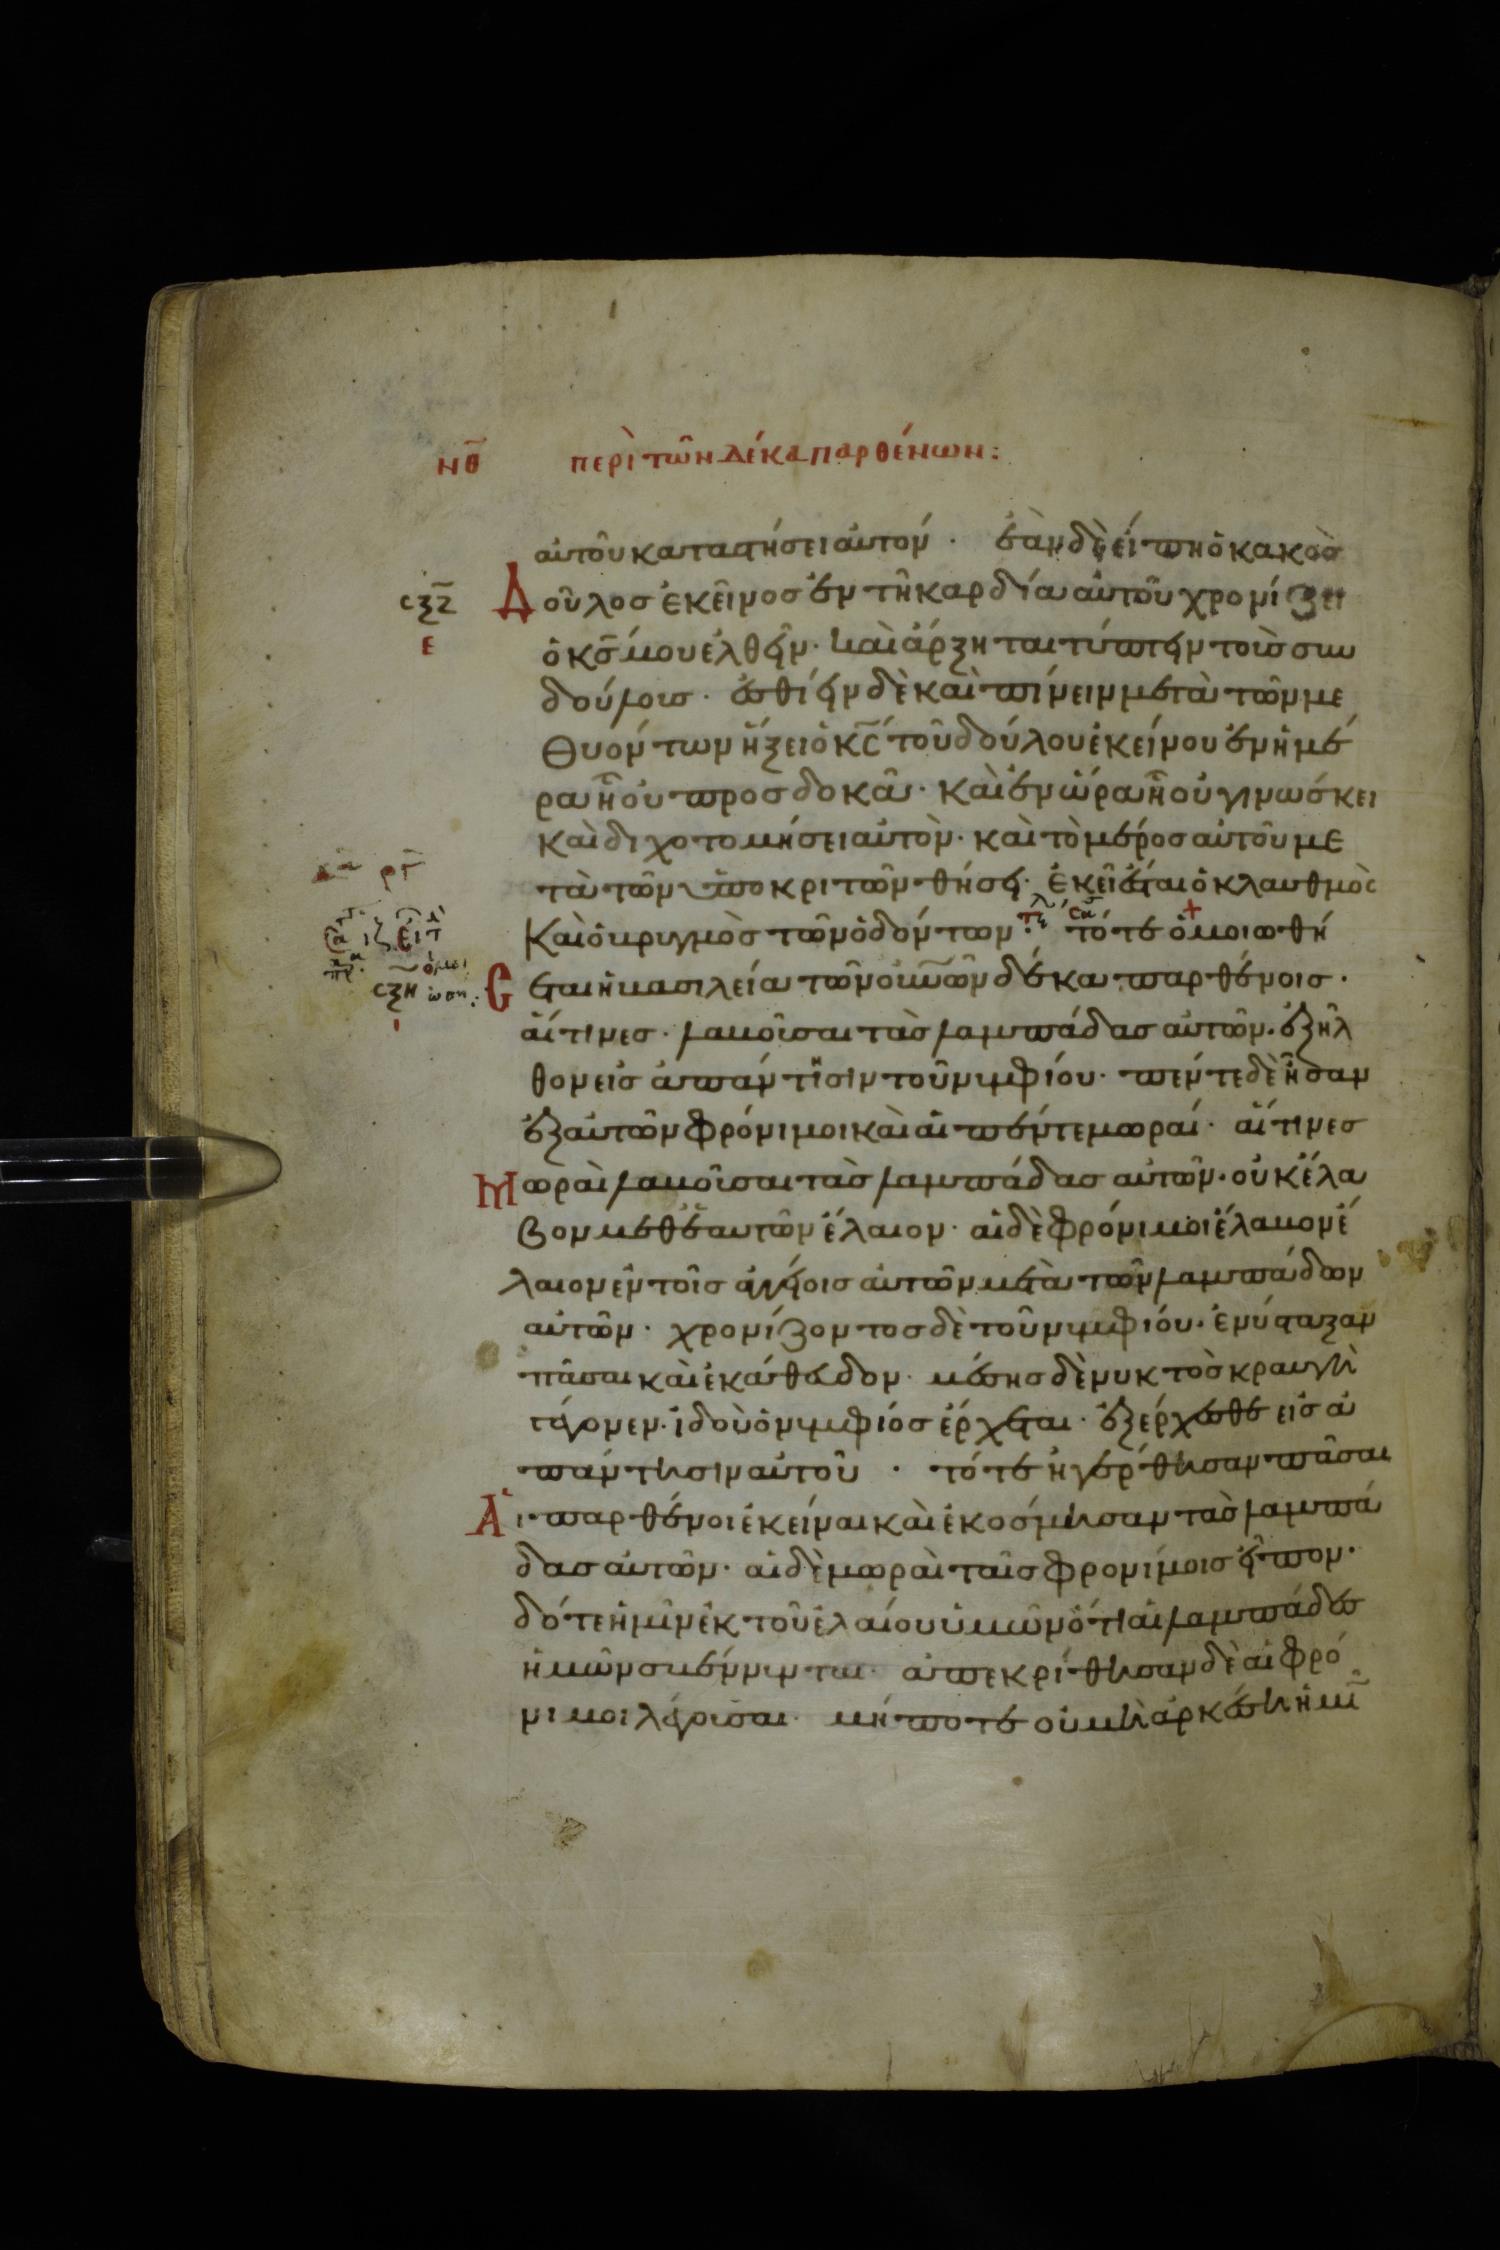 νθ περὶ τῶν δέκα παρθένων:
αὐτοῦ καταστήσει αὐτόν · ἐὰν δὲ εἴπη ὁ κακὸσ
Δοῦλοσ ἐκεῖνοσ ἐν τῆ καρδία αὐτοῦ χρονίζει
σξζ
ε
ὁ κσ̄ μου ἐλθεῖν · καὶ ἄρξηται τύπτειν τοὺσ συν
δούλουσ · ἐσθίειν δὲ καὶ πίνειν μετὰ τῶν με
θυόντων ἥξει ὁ κσ̄ τοῦ δούλου ἐκείνου ἐν ἡμέ
ρα ἧ οὐ προσδοκᾶ · καὶ ἐν ὥρα ἧ οὐ γινώσκει
καὶ διχοτομήσει αὐτὸν · καὶ τὸ μέροσ αὐτοῦ με
τὰ τῶν ὑποκριτῶν θήσει · ἐκεῖ ἔσται ὁ κλαυθμὸσ
Καὶ ὁ βρυγμὸσ τῶν ὀδόντων · τότε ὁμοιωθή
σξη
ι
Cεται ἡ βασιλεία τῶν οὐνῶν δέκα παρθένοισ ·
αἵτινεσ · λαβοῦσαι τὰσ λαμπάδασ αὐτῶν · ἐξῆλ
θον εἰσ ἀπάντησιν τοῦ νυμφίου · πέντε δὲ ἦσαν
ἐξ αὐτῶν φρόνιμοι καὶ αἱ πέντε μωραί · αἵτινεσ
Μωραὶ λαβοῦσαι τὰσ λαμπάδασ αὐτῶν · οὐκ ἔλα
βον μεθ ἑαυτῶν ἔλαιον · αἱ δὲ φρόνιμοι ἔλαβον ἔ
λαιον ἐν τοῖσ ἀγγείοισ αὐτῶν μετὰ τῶν λαμπάδων
αὐτῶν · χρονίζοντοσ δὲ τοῦ νυμφίου · ἐνύσταξαν
πᾶσαι καὶ ἐκάθευδον · μέσησ δὲ νυκτὸσ κραυγὴ
γέγονεν · ἰδοὺ ὁ νυμφίοσ ἔρχεται · ἐξέρχεσθε εἰσ ἀ
πάντησιν αὐτοῦ · τότε ἠγέρθησαν πᾶσαι
Αἱ παρθένοι ἐκεῖναι καὶ ἐκόσμησαν τὰσ λαμπά
δασ αὐτῶν · αἱ δὲ μωραὶ ταῖσ φρονίμοισ εἶπον ·
δότε ἡμῖν ἐκ τοῦ ἐλαίου ὑμῶν ὅτι αἱ λαμπάδεσ
ἡμῶν σβέννυνται · ἀπεκρίθησαν δὲ αἱ φρό
νιμοι λέγουσαι · μήποτε οὐ μὴ ἀρκέση ἡμῖ